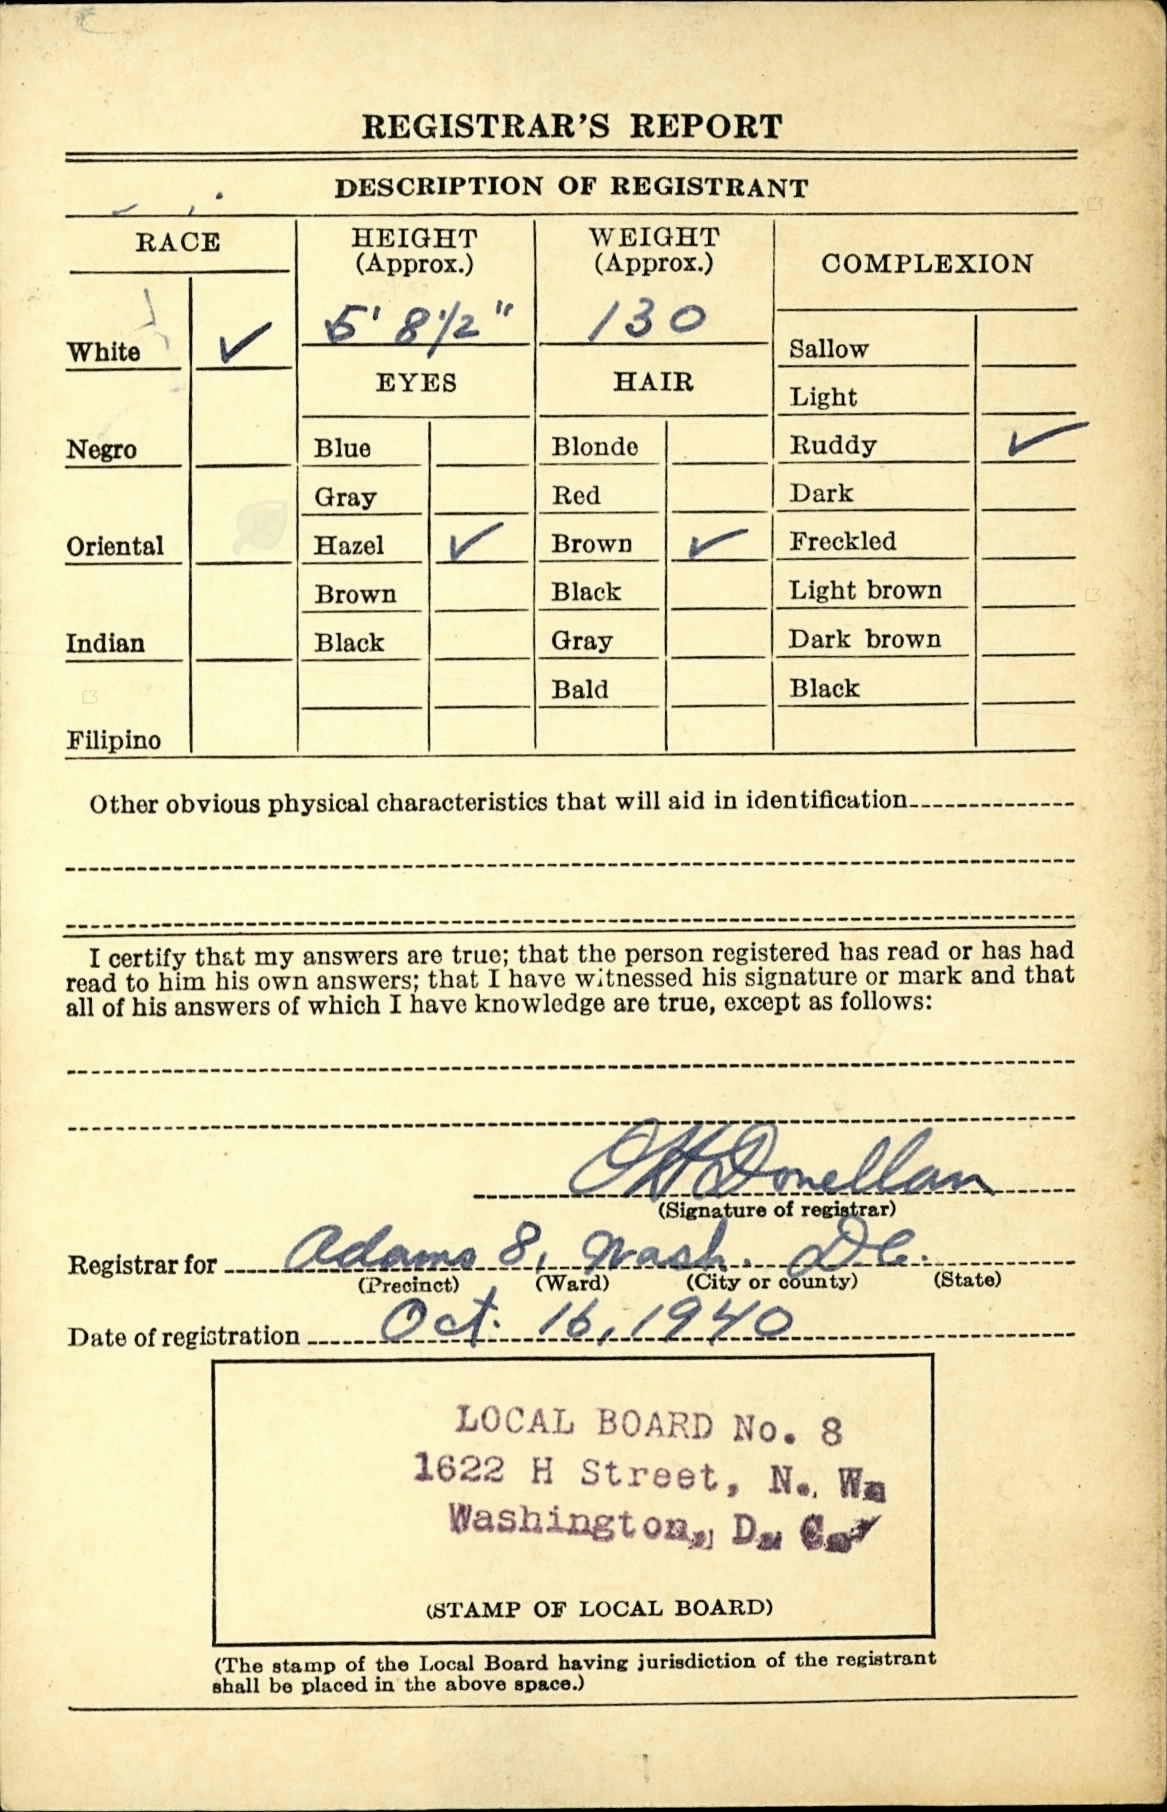 REGISTRAR'S REPORT
DESCRIPTION OF REGISTRANT
RACE
HEIGHT
(Approx.)
WEIGHT
(Approx.)
COMPLEXION
5' 8 1/2"
130
White ✓
Sallow
EYES
HAIR
Light
Negro
Blue
Blonde
Ruddy ✓
Gray
Red
Dark
Oriental
Hazel ✓
Brown ✓
Freckled
Brown
Black
Light brown
Indian
Black
Gray
Dark brown
Bald
Black
Filipino
Other obvious physical characteristics that will aid in identification
I certify that my answers are true; that the person registered has read or has had
read to him his own answers; that I have witnessed his signature or mark and that
all of his answers of which I have knowledge are true, except as follows:
Donellan
(Signature of registrar)
Registrar for Adams 8, Wash. D.C.
(Precinct) (Ward) (City or county) (State)
Date of registration Oct. 16, 1940
LOCAL BOARD No. 8
1622 H Street, N. W.
Washington, D. C.
(STAMP OF LOCAL BOARD)
(The stamp of the Local Board having jurisdiction of the registrant
shall be placed in the above space.)